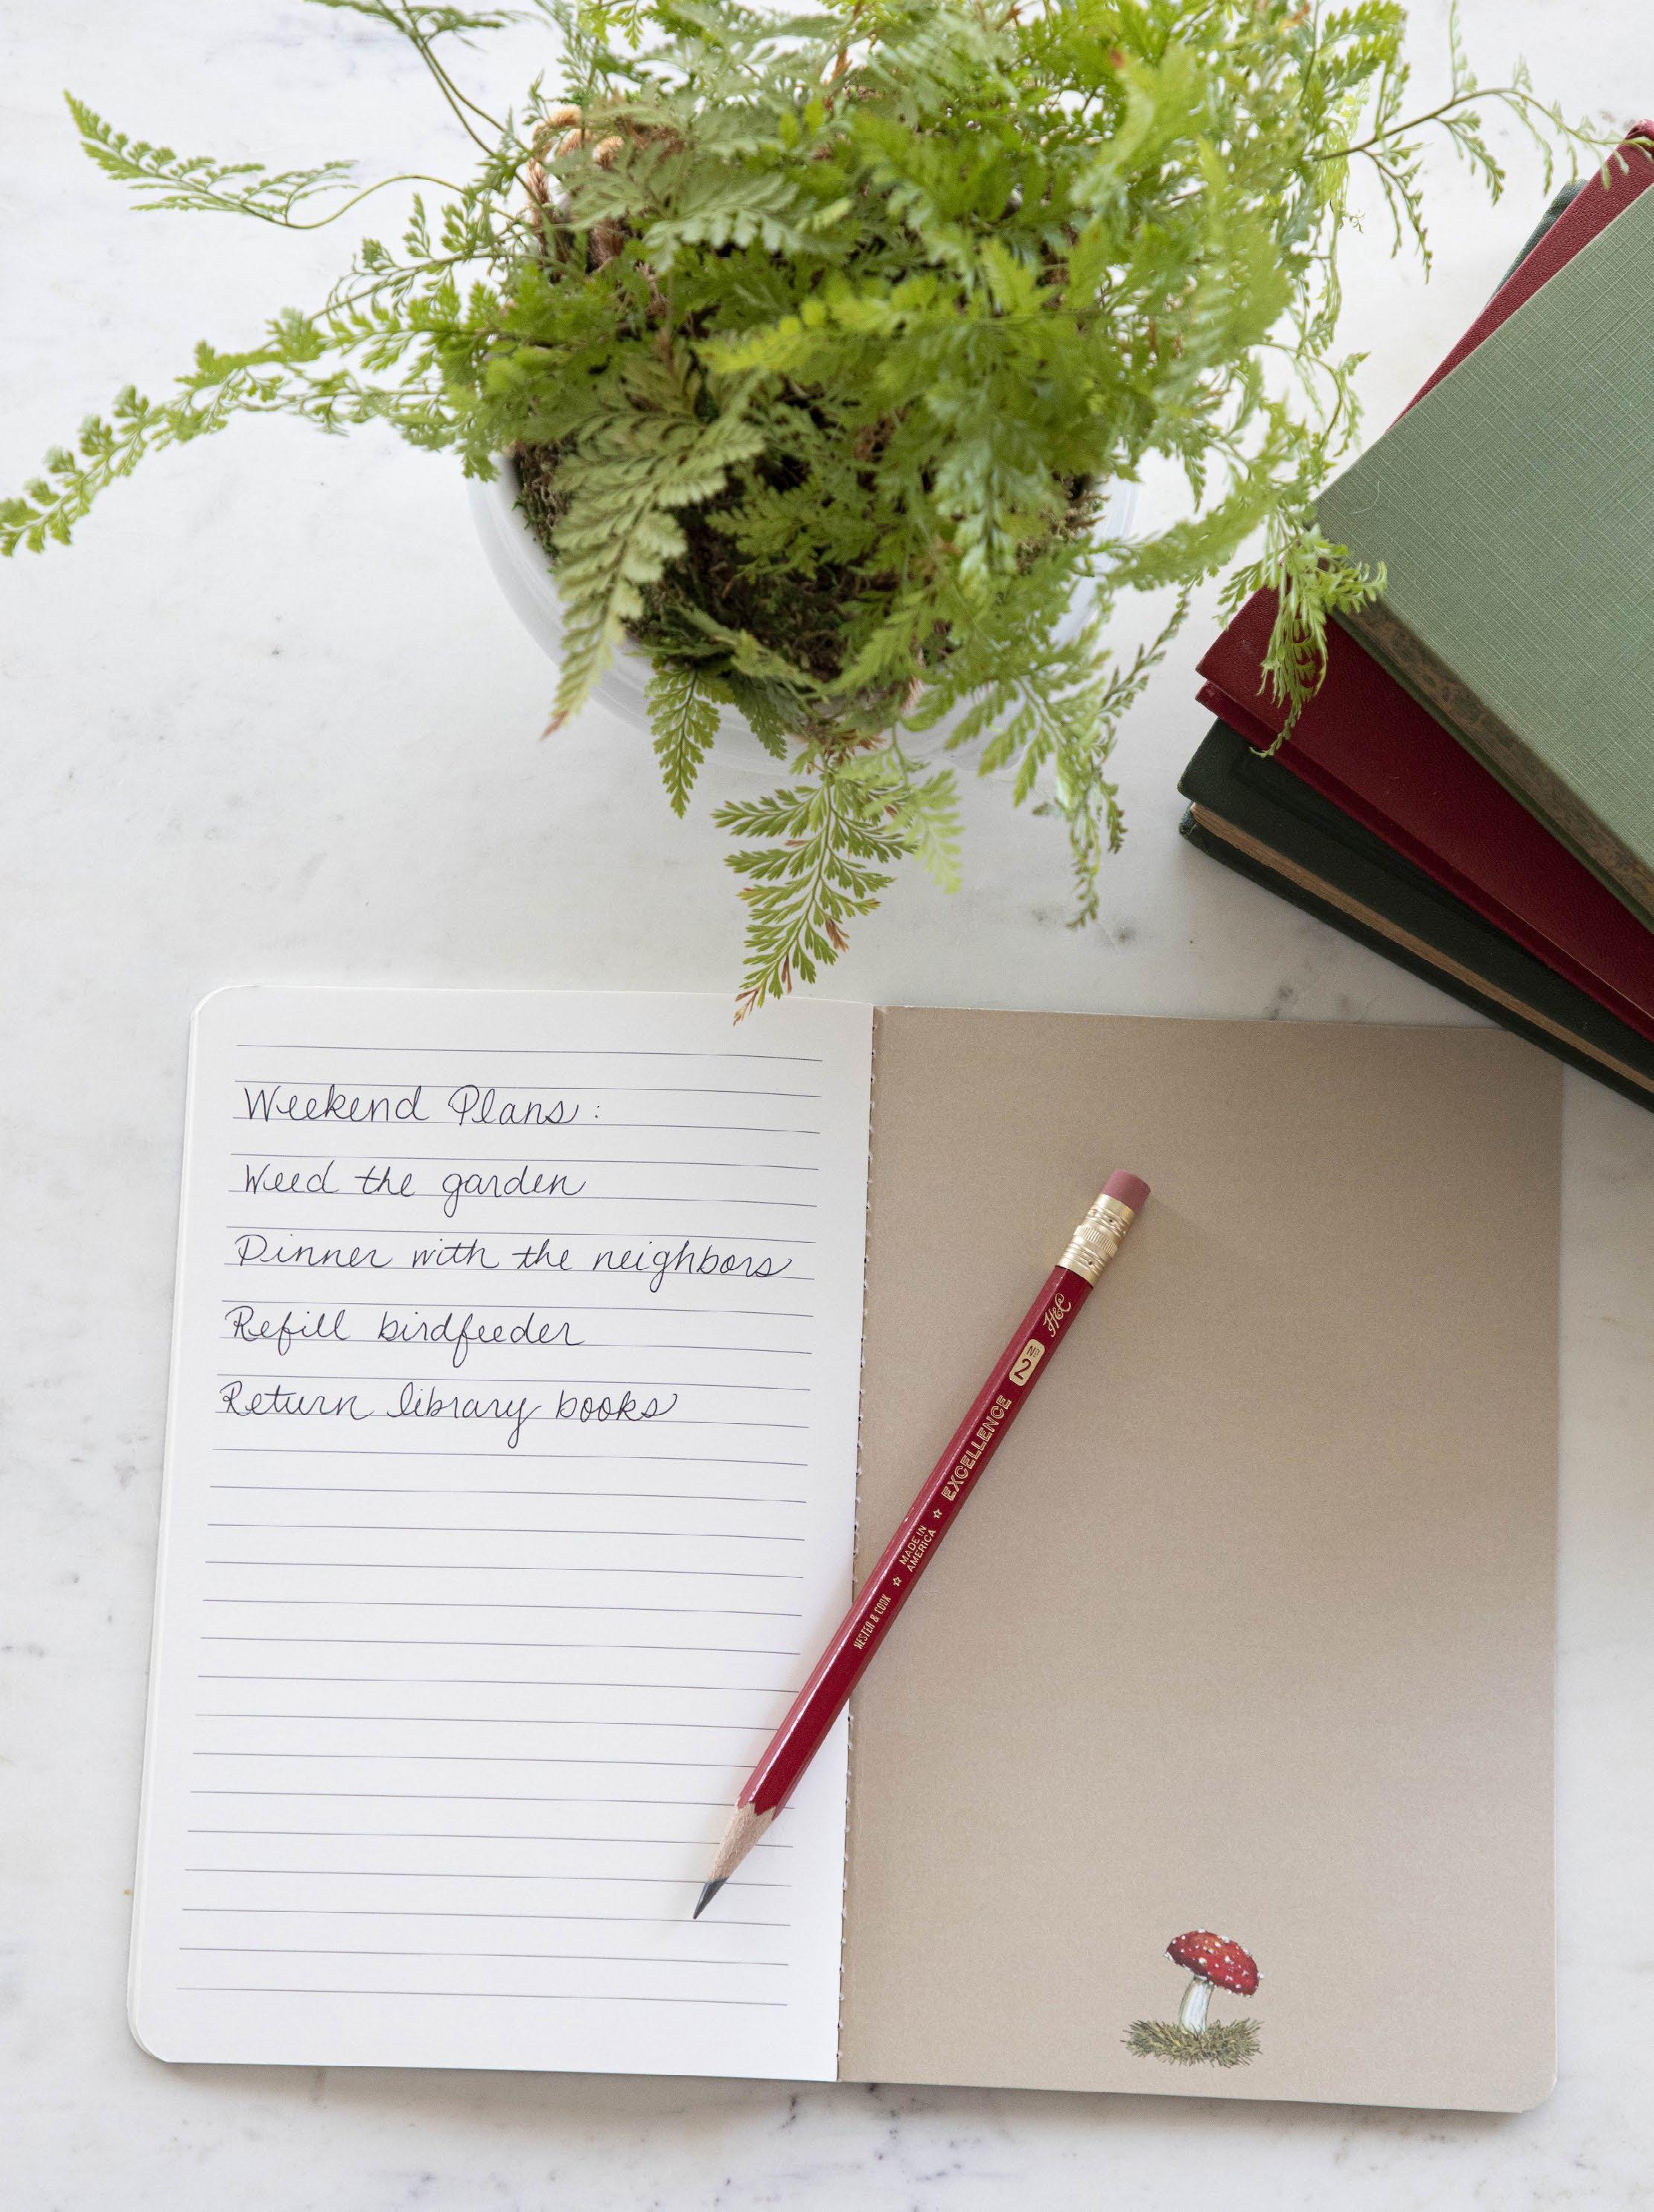 Weekend Plans:
Weed the garden
Dinner with the neighbors
Refill birdfeeder
Return library books
HESTER & COOK ☆ MADE IN AMERICA ☆ EXCELLENCE Nº 2 H&C